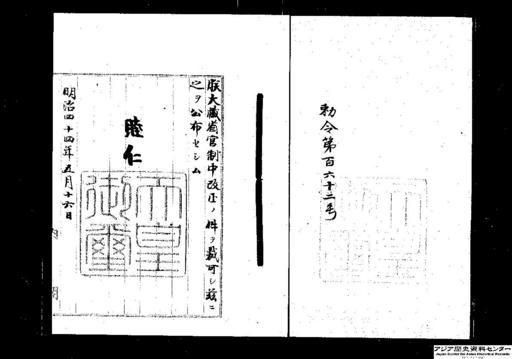 朕大藏省官制中改正ノ件ヲ裁可シ茲ニ
之ヲ公布セシム
睦仁
天皇
御璽
明治四十四年五月十六日
内閣
勅令第百六十二号
アジア歴史資料センター
Japan Center for Asian Historical Records